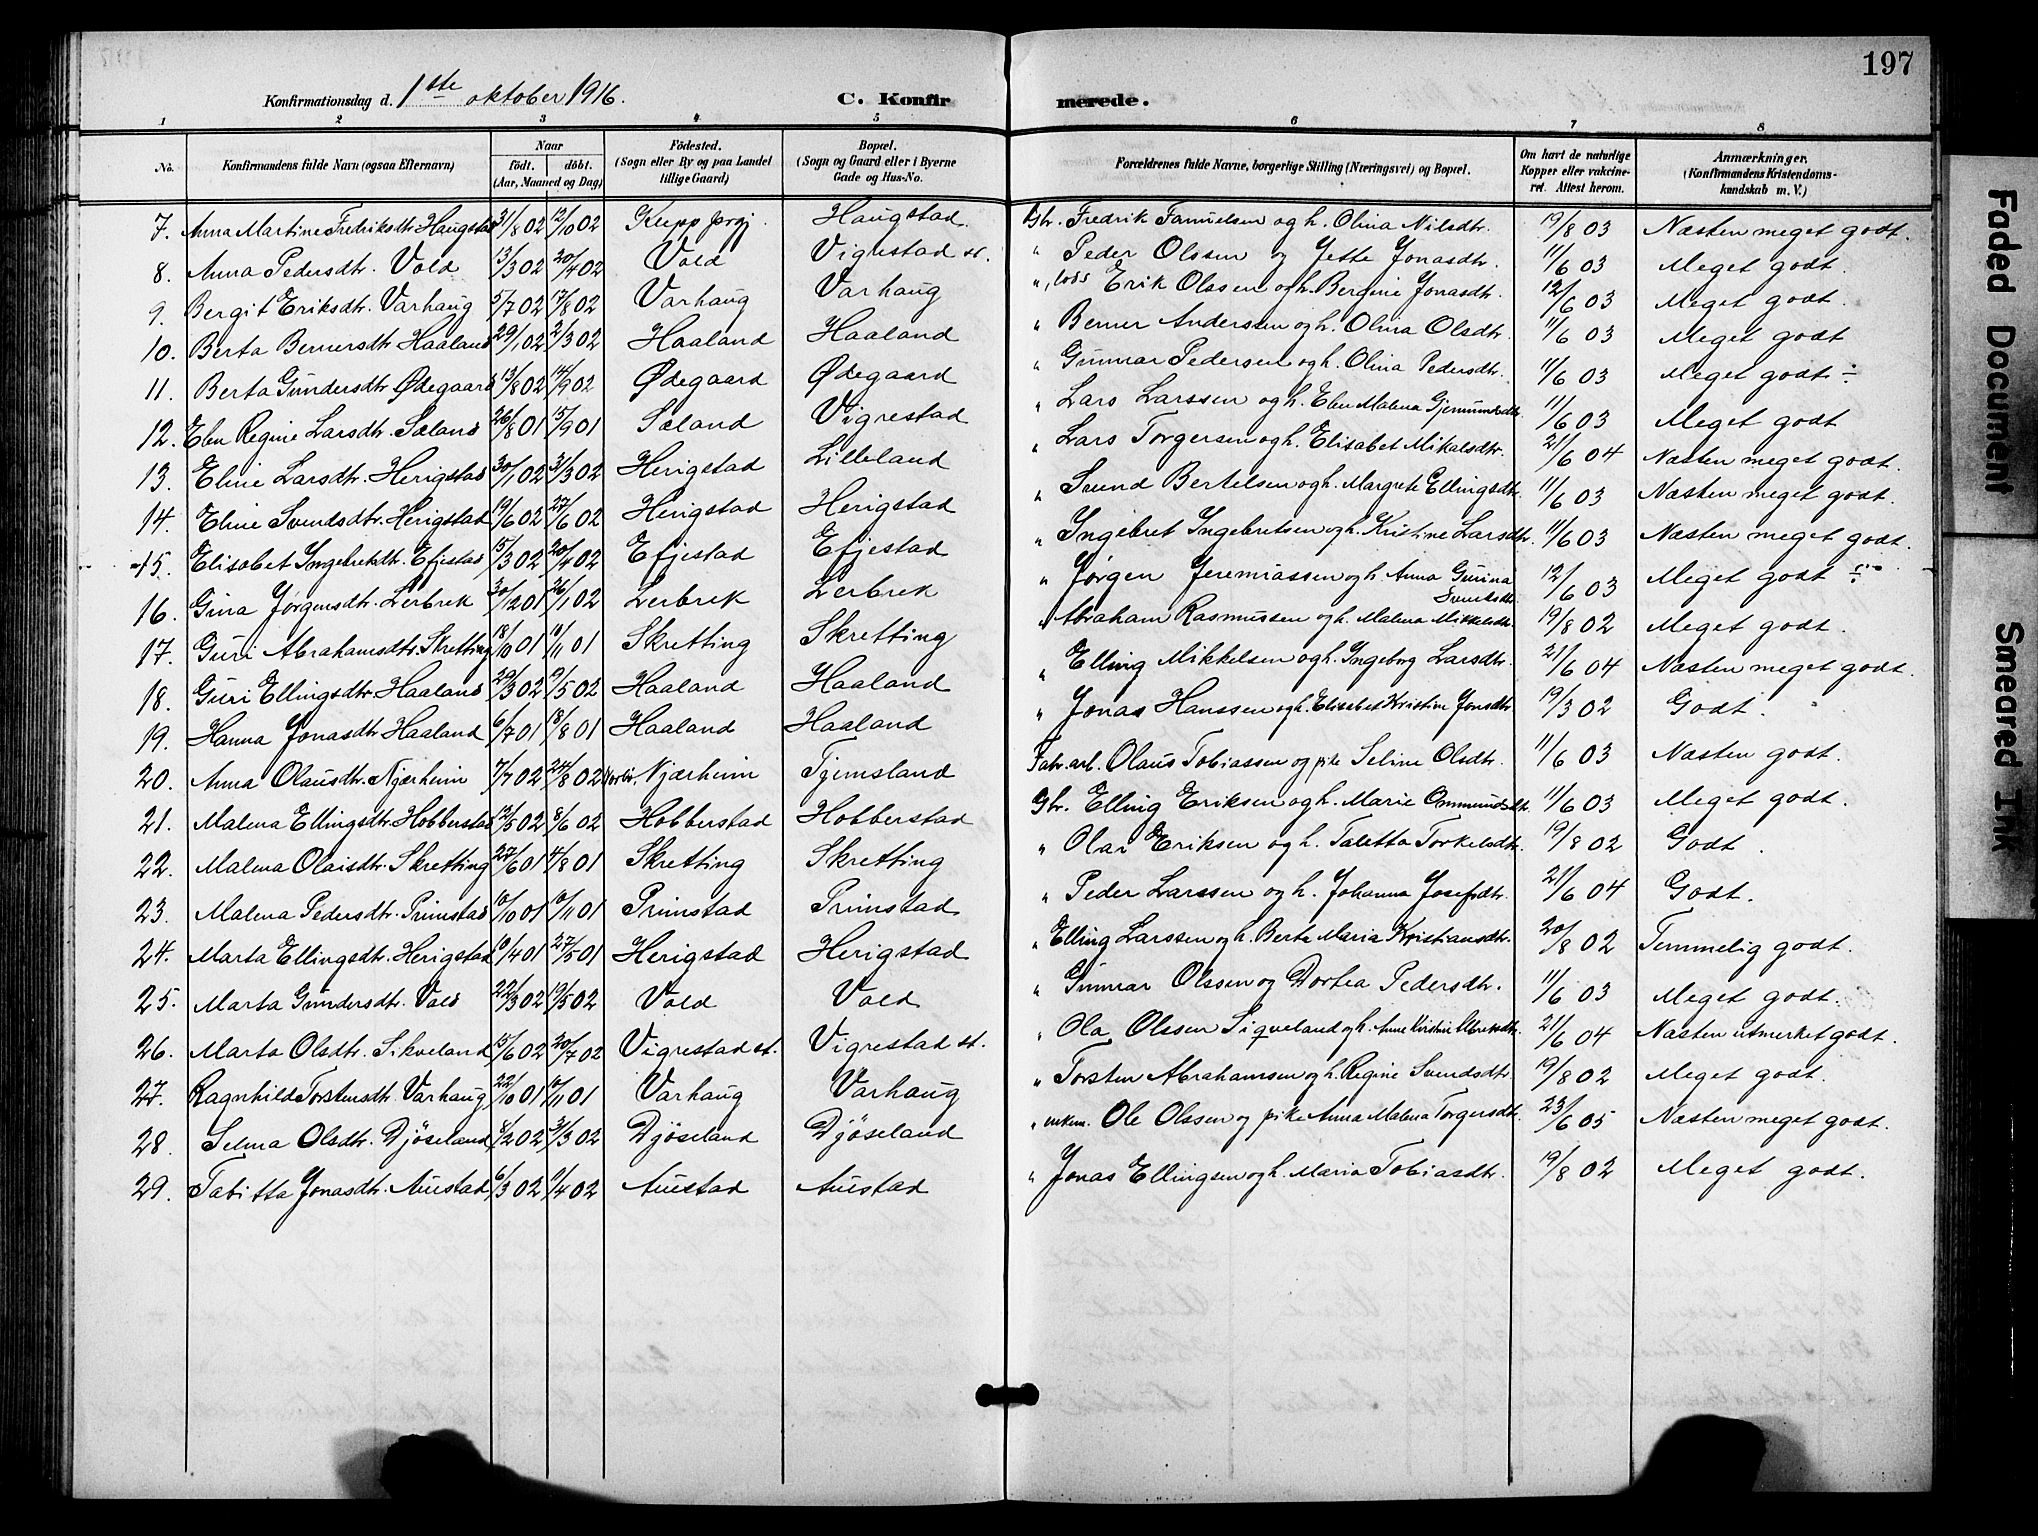 197
Konfirmationsdag d. 1ste oktober 1916. C. Konfirmerede.
1 2 3 4 5 6 7 8
No. Konfirmandens fulde Navn (ogsaa Efternavn) Naar födt. döbt. (Aar, Maaned og Dag) Födested. (Sogn eller By og paa Landet tillige Gaard) Bopæl. (Sogn og Gaard eller i Byerne Gade og Hus-No. Forældrenes fulde Navne, borgerlige Stilling (Næringsvei) og Bopæl. Om havt de naturlige Kopper eller vakcineret. Attest herom. Anmærkninger, (Konfirmandens Kristendomskundskab m. V.)
7. Anna Martine Fredriksdtr. Haugstad 31/8 02 12/10 02 Klepp prgj. Haugstad Gbr. Fredrik Samuelsen og h. Olina Nilsdtr. 19/8 03 Næsten meget godt.
8. Anna Pedersdtr. Vold 13/3 02 20/4 02 Vold Vigrestad st. " Peder Olssen og Jette Jonasdtr. 11/6 03 Meget godt.
9. Bergit Eriksdtr. Varhaug 5/7 02 17/8 02 Varhaug Varhaug ", lods Erik Olssen og h. Bergine Jonasdtr. 12/6 03 Meget godt.
10. Berta Bernersdtr. Haaland 29/1 02 2/3 02 Haaland Haaland " Berner Anderssen og h. Olina Olsdtr. 11/6 03 Meget godt
11. Berta Gundersdtr. Ødegaard 13/8 02 14/9 02 Ødegaard Ødegaard " Gunnar Pedersen og h. Olina Pedersdtr. 11/6 03 Meget godt ÷
12. Elen Regine Larsdtr. Sæland 26/8 01 15/9 01 Sæland Vigrestad " Lars Larssen og h. Elen Malena Gjermundsdtr. 11/6 03 Meget godt
13. Eline Larsdtr. Herigstad 30/1 02 31/3 02 Herigstad Lilleland " Lars Torgersen og h. Elisabet Mikalsdtr. 21/6 04 Næsten meget godt.
14. Eline Svendsdtr. Herigstad 19/6 02 27/6 02 Herigstad Herigstad " Svend Bertelsen og h. Margrete Ellingsdtr. 11/6 03 Næsten meget godt.
15. Elisabet Ingebretsdtr. Efjestad 15/3 02 20/4 02 Efjestad Efjestad " Ingebret Ingebretsen og h. Kristine Larsdtr. 11/6 03 Næsten meget godt.
16. Gina Jørgensdtr. Lerbrek 30/12 01 26/1 02 Lerbrek Lerbrek " Jørgen Jeremiassen og h. Anna Gurina Svendsdtr. 12/6 03 Meget godt ÷
17. Guri Abrahamsdtr. Skretting 18/10 01 10/11 01 Skretting Skretting " Abraham Rasmussen og h. Malena Mikkelsdtr. 19/8 02 Meget godt.
18. Guri Ellingsdtr. Haaland 29/3 02 9/5 02 Haaland Haaland " Elling Mikkelsen og h. Ingeborg Larsdtr. 21/6 04 Næsten meget godt.
19. Hanna Jonasdtr. Haaland 6/7 01 18/8 01 Haaland Haaland " Jonas Hanssen og h. Elisabet Kristine Jonsdtr. 19/3 02 Godt.
20. Anna Olausdtr. Njærheim 7/7 02 24/8 02 Njærheim Tjemsland Fabr.arb. Olaus Tobiassen og pike Seline Olsdtr. 11/6 03 Næsten godt.
21. Malena Ellingsdtr. Hobberstad 12/5 02 8/6 02 Hobberstad Hobberstad Gbr. Elling Eriksen og h. Marie Ommundsdtr. 11/6 03 Meget godt.
22. Malena Olaisdtr. Skretting 27/6 01 4/8 01 Skretting Skretting " Olai Eriksen og h. Taletta Torkelsdtr. 19/8 02 Godt.
23. Malena Pedersdtr. Primstad 10/10 01 10/11 01 Primstad Primstad " Peder Larssen og h. Johanna Josefsdtr. 21/6 04 Godt.
24. Marta Ellingsdtr. Herigstad 10/4 01 27/5 01 Herigstad Herigstad " Elling Larssen og h. Berta Maria Kristiansdtr. 20/8 02 Temmelig godt.
25. Marta Gundersdtr. Vold 22/3 02 19/5 02 Vold Vold " Gunnar Olssen og Dortea Pedersdtr. 11/6 03 Meget godt.
26. Marta Olsdtr. Sikveland 15/6 02 20/7 02 Vigrestad st. Vigrestad st. " Ola Olssen Siqveland og h. Anne Kristine 21/6 04 Næsten utmerket godt.
27. Ragnhild Torstensdtr. Varhaug 22/10 01 10/11 01 Varhaug Varhaug " Torsten Abrahamsen og h. Regine Svendsdtr. 19/8 02 Meget godt.
28. Selma Olsdtr. Djöseland 8/2 02 31/3 02 Djöseland Djöseland " enkem. Ole Olssen og pike Anna Malena Torgersdtr. 23/6 05 Næsten meget godt.
29. Tabitta Jonasdtr. Auestad 6/3 02 9/4 02 Auestad Auestad " Jonas Ellingsen og h. Maria Tobiasdtr. 19/8 02 Meget godt.
Faded Document
Smeared Ink